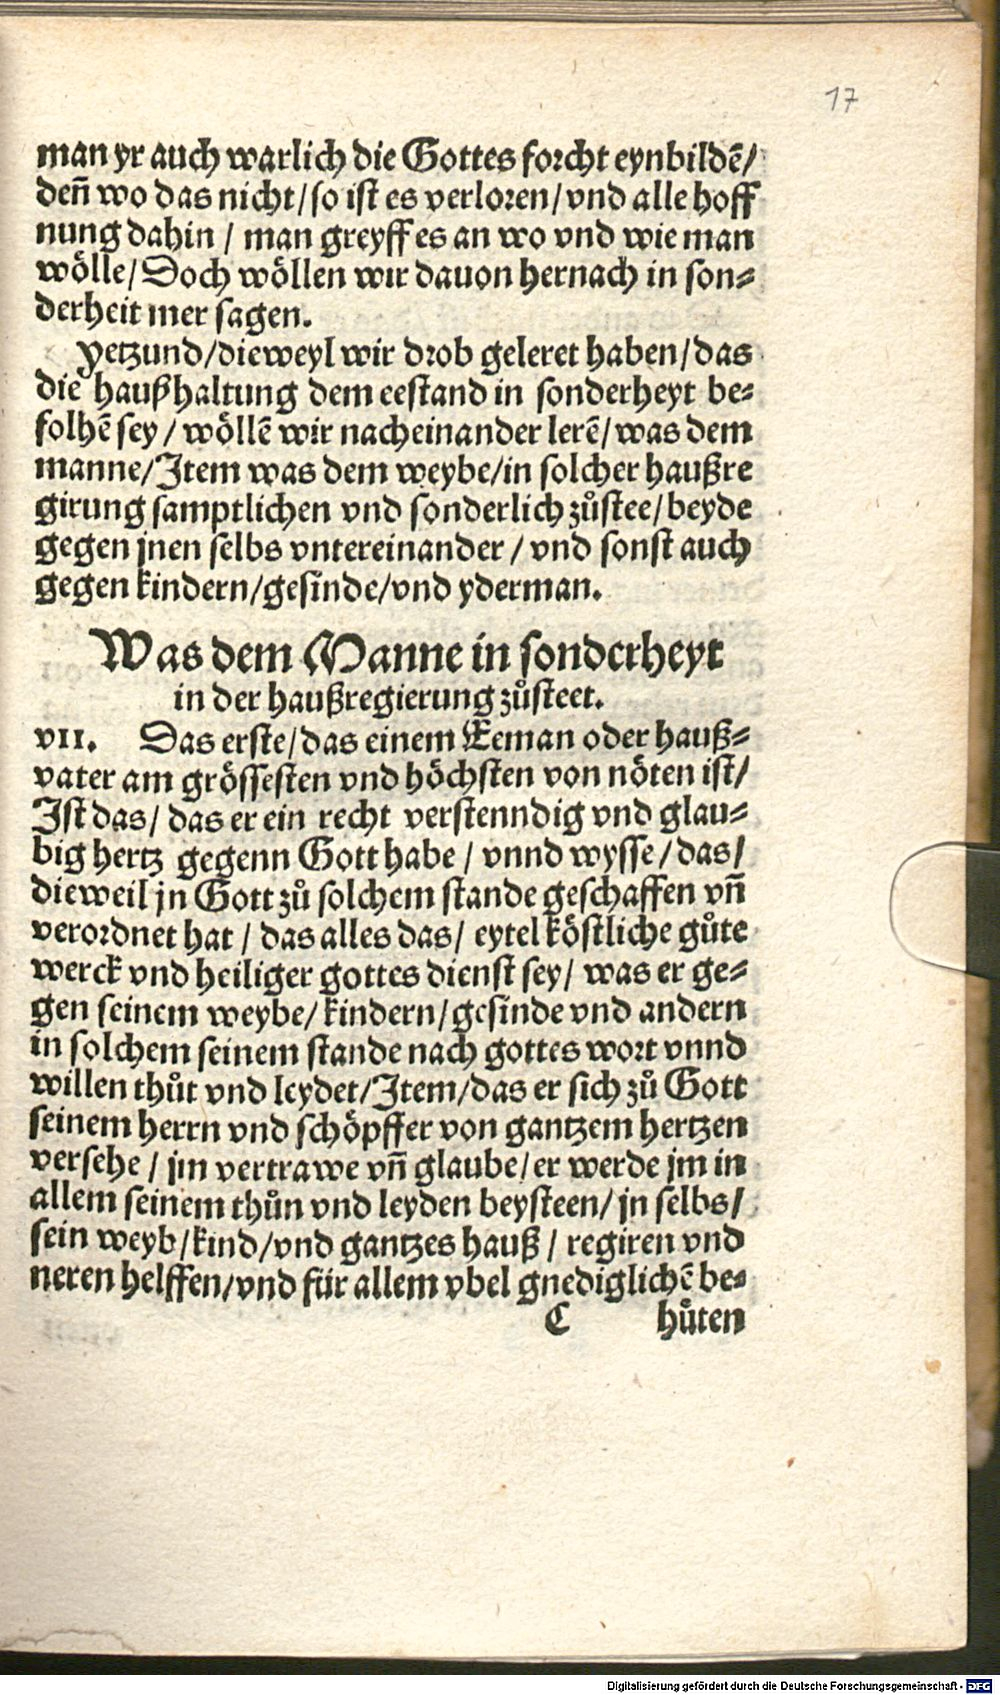 17
man yr auch warlich die Gottes forcht eynbildẽ/
deñ wo das nicht/so ist es verloren/vnd alle hoff
nung dahin / man greyff es an wo vnd wie man
wölle/Doch wöllen wir dauon hernach in son⸗
derheit mer sagen.
Yetzund/dieweyl wir drob geleret haben/das
die haußhaltung dem eestand in sonderheyt be⸗
folhẽ sey / wöllẽ wir nacheinander lerẽ/was dem
manne/Item was dem weybe/in solcher haußre
girung samptlichen vnd sonderlich zůstee/beyde
gegen jnen selbs vntereinander / vnd sonst auch
gegen kindern/gesinde/vnd yderman.
Was dem Manne in sonderheyt
in der haußregierung zůsteet.
VII. Das erste/das einem Eeman oder hauß⸗
vater am grössesten vnd höchsten von nöten ist/
Ist das/ das er ein recht verstenndig vnd glau⸗
big hertz gegenn Gott habe / vnnd wysse/das/
dieweil jn Gott zů solchem stande geschaffen vñ
verordnet hat / das alles das/ eytel köstliche gůte
werck vnd heiliger gottes dienst sey/ was er ge⸗
gen seinem weybe/kindern/gesinde vnd andern
in solchem seinem stande nach gottes wort vnnd
willen thůt vnd leydet/Item/das er sich zů Gott
seinem herrn vnd schöpffer von gantzem hertzen
versehe / jm vertrawe vñ glaube/er werde jm in
allem seinem thůn vnd leyden beysteen/jn selbs/
sein weyb/kind/vnd gantzes hauß / regiren vnd
neren helffen/vnd für allem vbel gnediglichẽ be⸗
C hůten
Digitalisierung gefördert durch die Deutsche Forschungsgemeinschaft - DFG